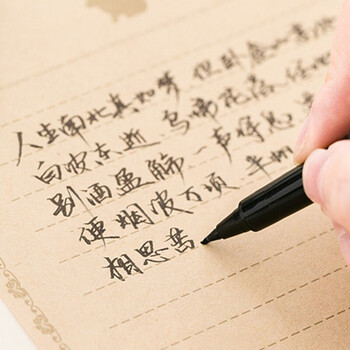 人生南北真如梦 但卧金山高
白波东逝 鸟啼花落 任他
别酒盈觞 一声将息
便烟波万顷 半帆
相思苦